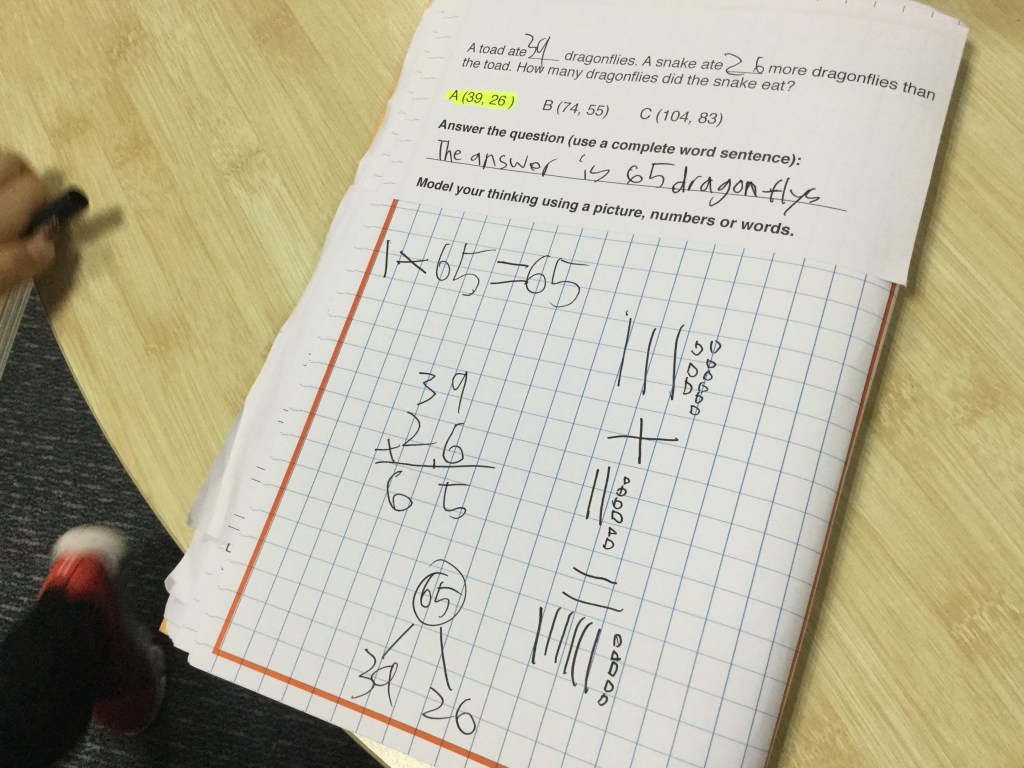 A toad ate 39 dragonflies. A snake ate 26 more dragonflies than
the toad. How many dragonflies did the snake eat?
A (39, 26 ) B (74, 55) C (104, 83)
Answer the question (use a complete word sentence):
The answer is 65 dragonflys
Model your thinking using a picture, numbers or words.
1 × 65 = 65
39
+ 26
65
+
=
65
39 26